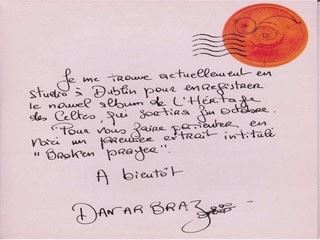 Je me trouve actuellement en
studio à Dublin pour enregistrer
le nouvel album de L'Héritage
des Celtes, qui sortira fin octobre.
Pour vous faire patienter en
voici un premier extrait intitulé
"Broken prayer".
A bientôt
DAN AR BRAZ